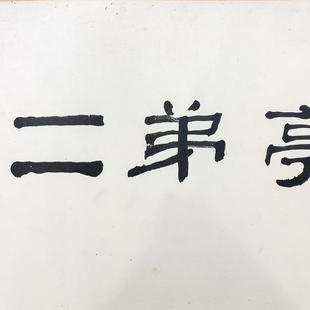 亭弟二